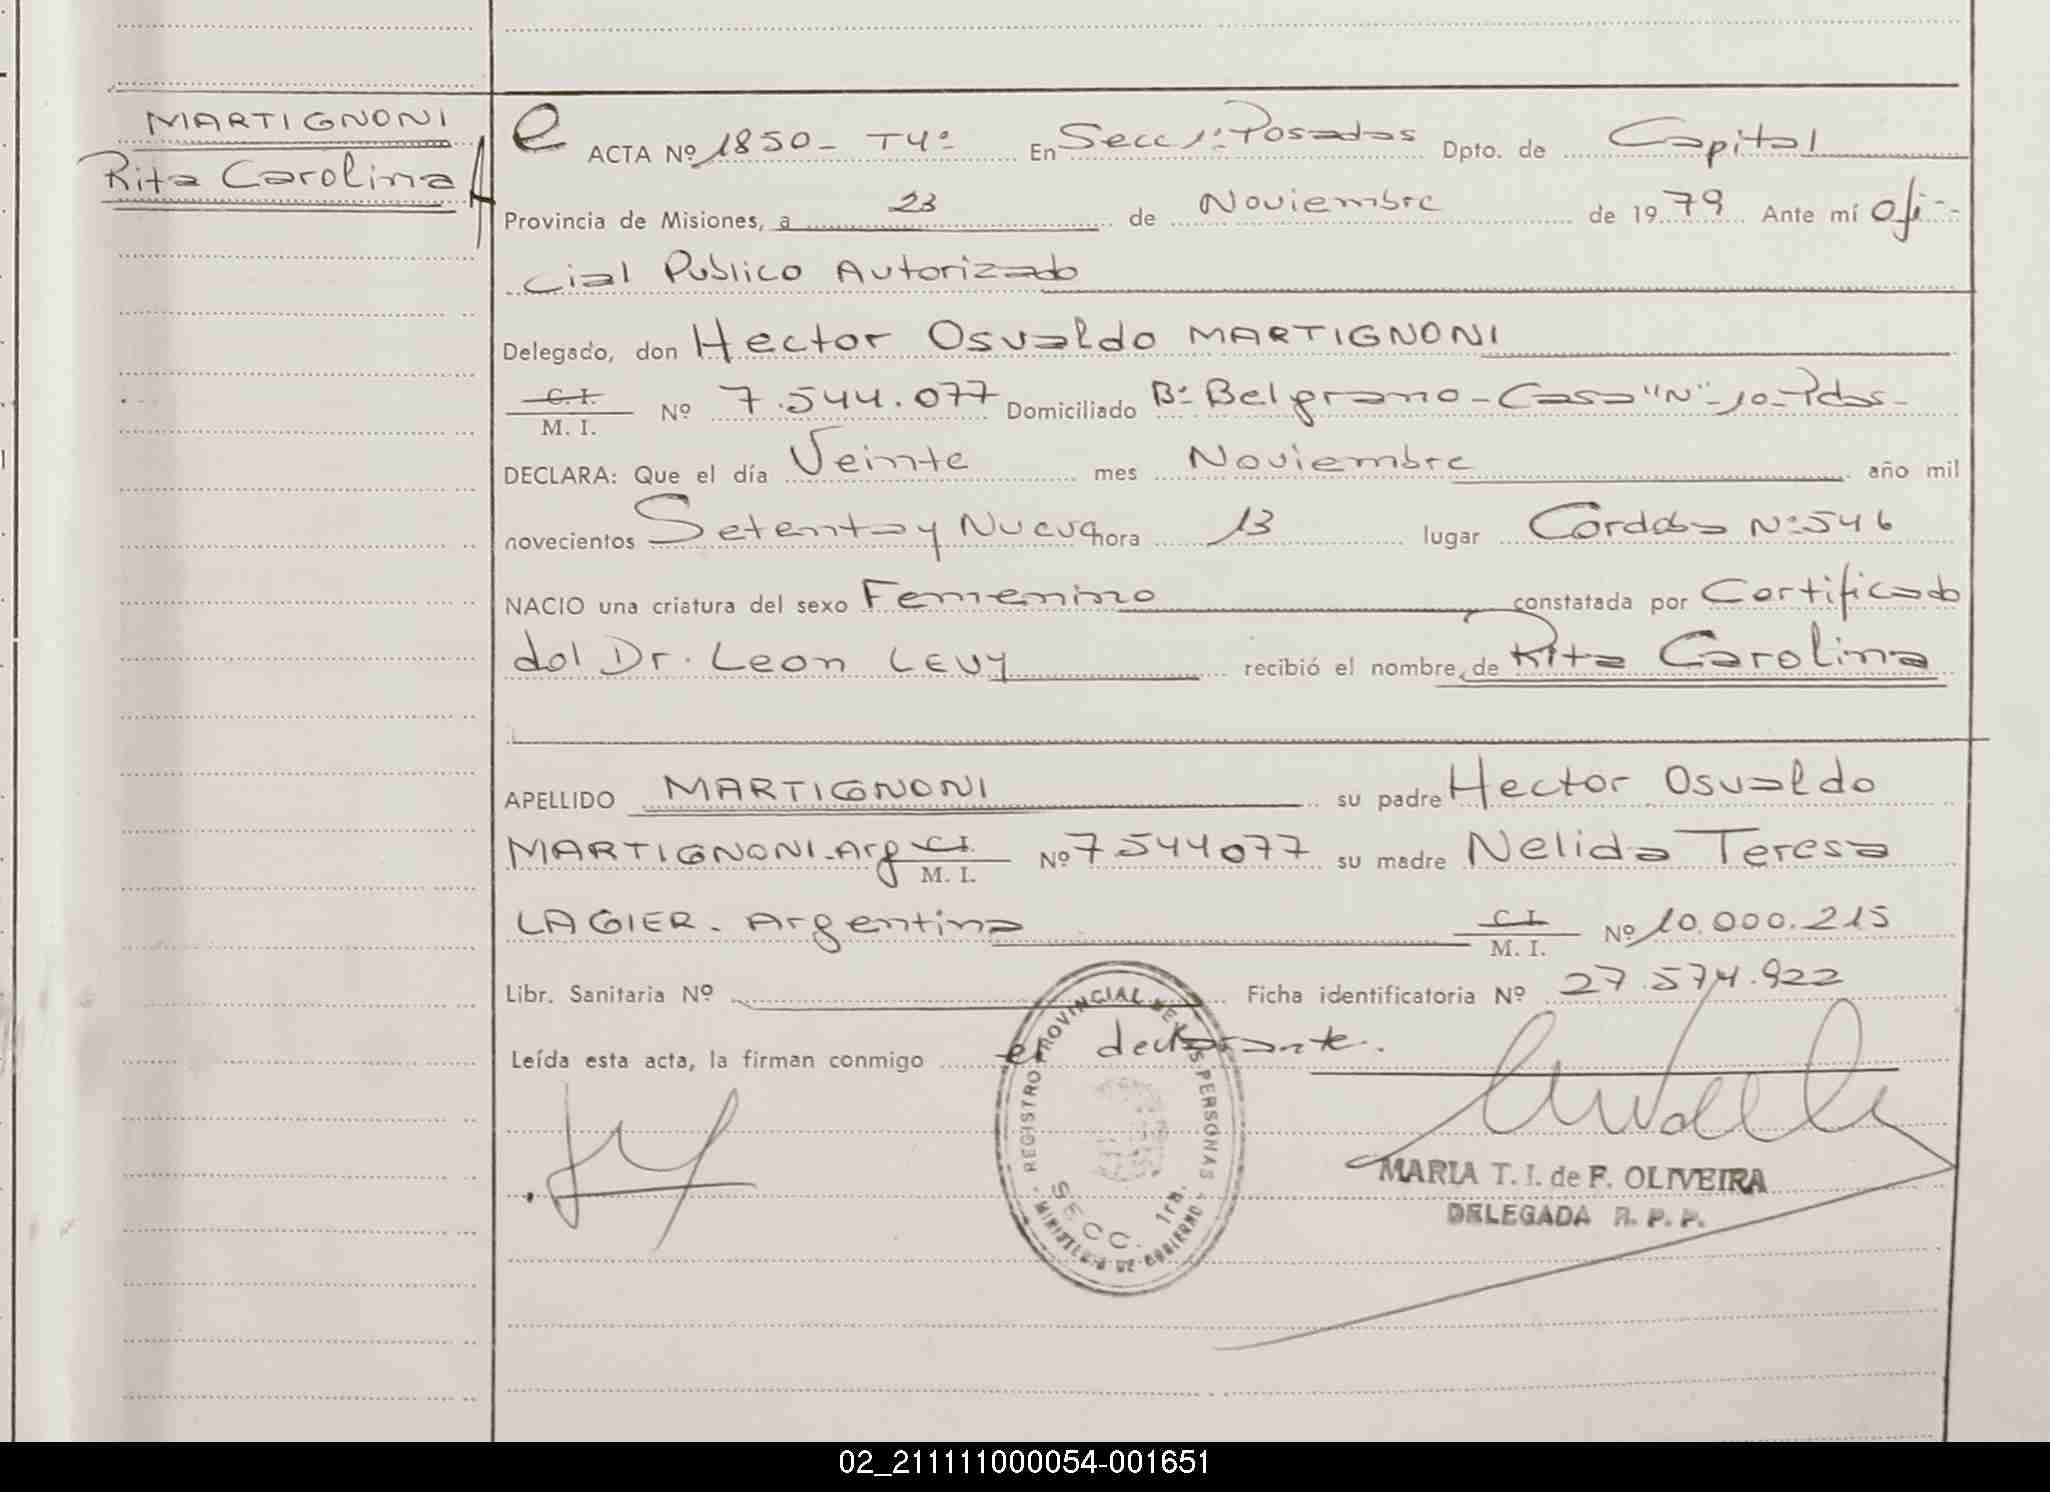 MARTIGNONI
Rita Carolina
e ACTA Nº 1850 - T4º En Secc 1ª Posadas Dpto. de Capital
Provincia de Misiones, a 23 de Noviembre de 1979 Ante mí Ofi-
cial Publico Autorizado
Delegado, don Hector Osvaldo MARTIGNONI
C. I. M. I. Nº 7.544.077 Domiciliado Bº Belgrano - Casa "N" - 10 - Pdas -
DECLARA: Que el día Veinte mes Noviembre año mil
novecientos Setenta y Nueve hora 13 lugar Cordoba Nº 546
NACIO una criatura del sexo Femenino constatada por Certificado
del Dr. Leon LEVY recibió el nombre de Rita Carolina
APELLIDO MARTIGNONI su padre Hector Osvaldo
MARTIGNONI - Arg C.I. M. I. Nº 7544077 su madre Nelida Teresa
LAGIER - Argentina C.I. M. I. Nº 10.000.215
Libr. Sanitaria Nº Ficha identificatoria Nº 27.574.922
Leída esta acta, la firman conmigo el declarante.
REGISTRO PROVINCIAL DE LAS PERSONAS
SECC. 1ra.
MINISTERIO DE GOBIERNO
MARIA T. I. de F. OLIVEIRA
DELEGADA R. P. P.
02_211111000054-001651